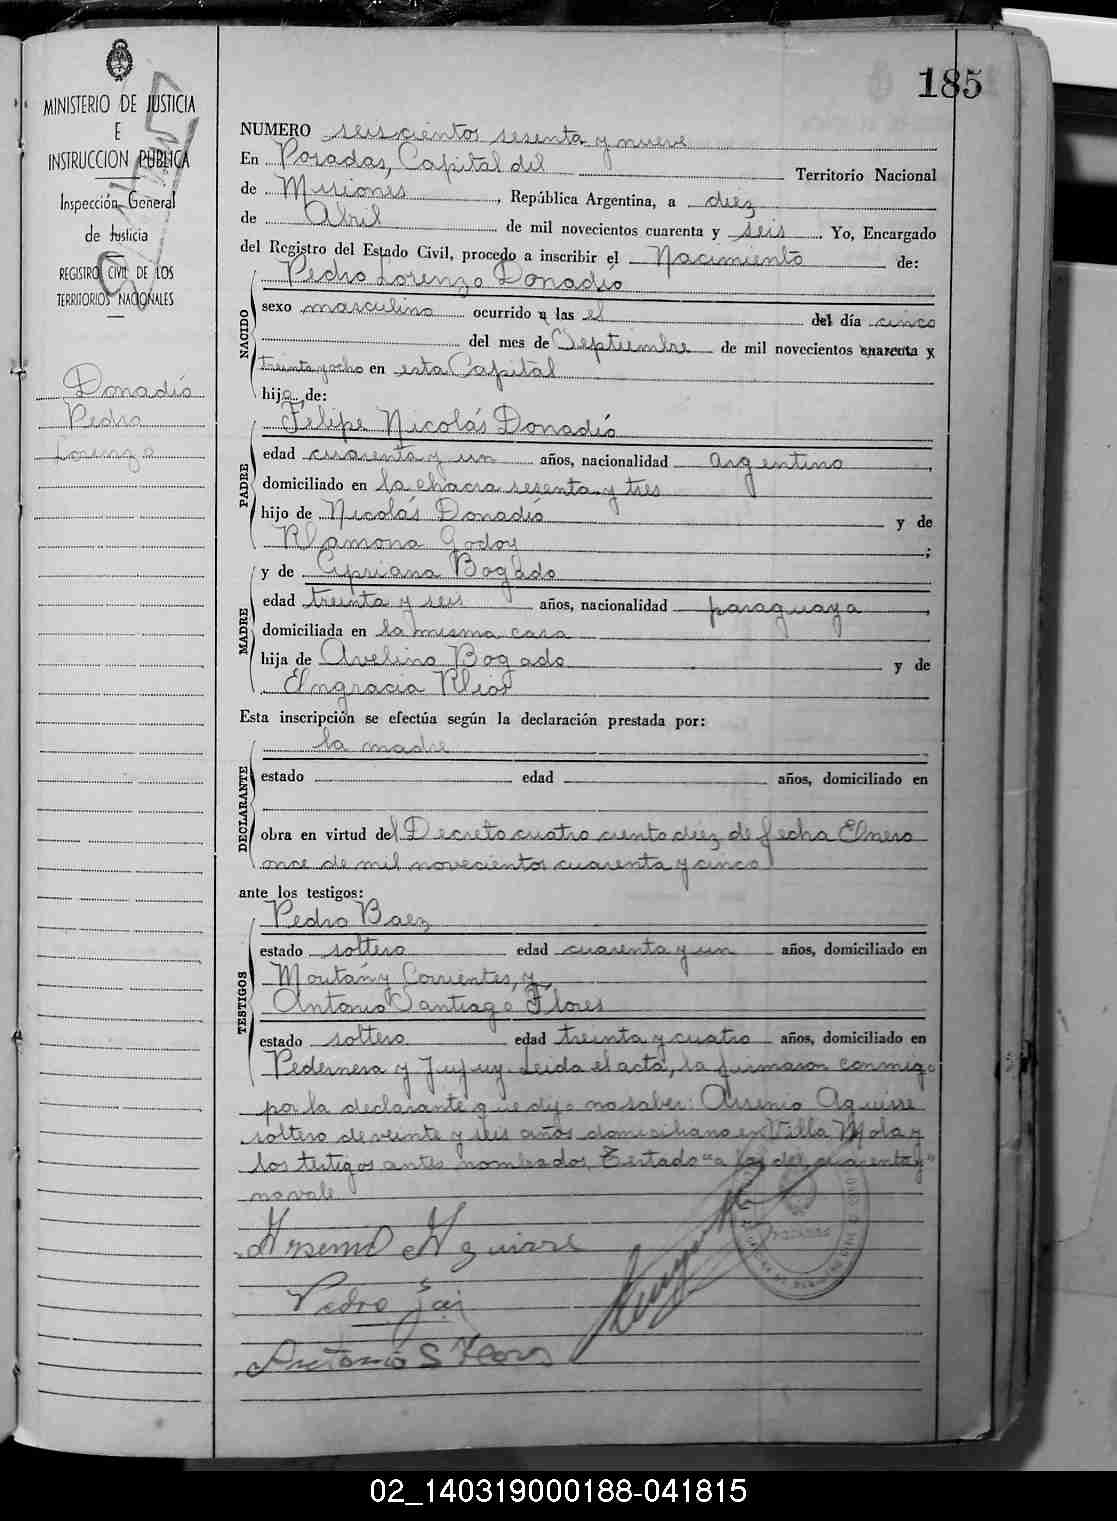 185
MINISTERIO DE JUSTICIA
E
INSTRUCCION PUBLICA
Inspección General
de Justicia
REGISTRO CIVIL DE LOS
TERRITORIOS NACIONALES
Donadío
Pedro
Lorenzo
NUMERO seiscientos sesenta y nueve
En Posadas, Capital del Territorio Nacional
de Misiones, República Argentina, a diez
de Abril de mil novecientos cuarenta y seis. Yo, Encargado
del Registro del Estado Civil, procedo a inscribir el Nacimiento de:
NACIDO
Pedro Lorenzo Donadío
sexo masculino ocurrido a las el del día cinco
del mes de Septiembre de mil novecientos cuarenta y
treinta y ocho en esta Capital
hijo de:
PADRE
Felipe Nicolás Donadío
edad cuarenta y un años, nacionalidad argentino,
domiciliado en la chacra sesenta y tres
hijo de Nicolás Donadío y de
Ramona Godoy;
MADRE
y de Cipriana Bogado
edad treinta y seis años, nacionalidad paraguaya,
domiciliada en la misma casa
hija de Avelino Bogado y de
Engracia Rios
Esta inscripción se efectúa según la declaración prestada por:
DECLARANTE
la madre
estado edad años, domiciliado en
obra en virtud del Decreto cuatro ciento diez de fecha Enero
once de mil novecientos cuarenta y cinco
ante los testigos:
TESTIGOS
Pedro Baez
estado soltero edad cuarenta y un años, domiciliado en
Corrientes, y
Antonio Santiago Flores
estado soltero edad treinta y cuatro años, domiciliado en
Pedernera y Jujuy. Leida el acta, la firmaron conmigo
por la declarante que dijo no saber: Arsenio Aguirre
soltero de veinte y seis años domiciliano en Villa Mola y
los testigos antes nombrados. Testado "a las del cuarenta y"
no vale
Arsenio Aguirre
Pedro
Antonio S Flores
POSADAS
02_140319000188-041815